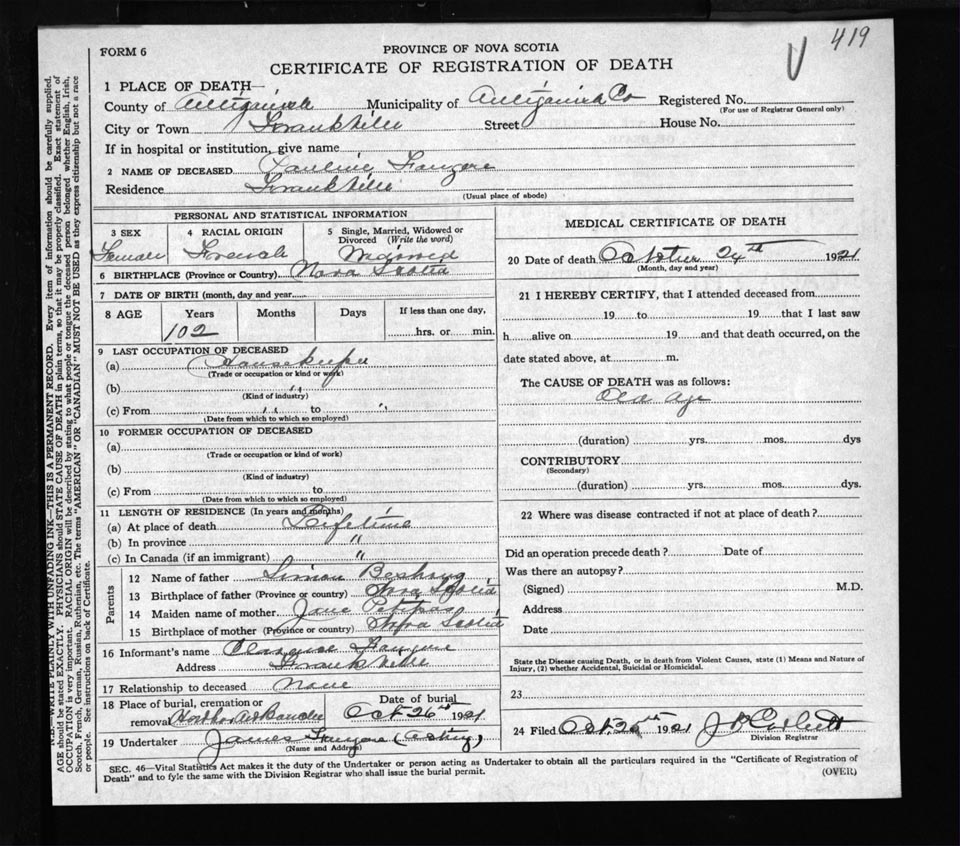 419
FORM 6
PROVINCE OF NOVA SCOTIA
CERTIFICATE OF REGISTRATION OF DEATH
1 PLACE OF DEATH—
County of Antigonish Municipality of Antigonish Co Registered No.
(For use of Registrar General only)
City or Town Frankville Street House No.
If in hospital or institution, give name
2 NAME OF DECEASED Pauline
Residence Frankville
(Usual place of abode)
PERSONAL AND STATISTICAL INFORMATION
3 SEX 4 RACIAL ORIGIN 5 Single, Married, Widowed or Divorced (Write the word)
Female French Widowed
6 BIRTHPLACE (Province or Country) Nova Scotia
7 DATE OF BIRTH (month, day and year)
8 AGE Years Months Days If less than one day,
102 hrs. or min.
9 LAST OCCUPATION OF DECEASED
(a) Housekeeper
(Trade or occupation or kind or work)
(b) "
(Kind of industry)
(c) From " to "
(Date from which to which so employed)
10 FORMER OCCUPATION OF DECEASED
(a)
(Trade or occupation or kind of work)
(b)
(Kind of industry)
(c) From to
(Date from which to which so employed)
11 LENGTH OF RESIDENCE (In years and months)
(a) At place of death Lifetime
(b) In province "
(c) In Canada (if an immigrant) "
Parents
12 Name of father Simon
13 Birthplace of father (Province or country) Nova Scotia
14 Maiden name of mother Jane
15 Birthplace of mother (Province or country) Nova Scotia
16 Informant's name
Address Frankville
17 Relationship to deceased None
18 Place of burial, cremation or removal Date of burial
Oct 26th 1921
19 Undertaker James (Acting)
(Name and Address)
MEDICAL CERTIFICATE OF DEATH
20 Date of death October 24th 1921
(Month, day and year)
21 I HEREBY CERTIFY, that I attended deceased from
19 to 19 that I last saw
h alive on 19 and that death occurred, on the
date stated above, at m.
The CAUSE OF DEATH was as follows:
Old age
(duration) yrs. mos. dys
CONTRIBUTORY
(Secondary)
(duration) yrs. mos. dys.
22 Where was disease contracted if not at place of death?
Did an operation precede death? Date of
Was there an autopsy?
(Signed) M.D.
Address
Date
State the Disease causing Death, or in death from Violent Causes, state (1) Means and Nature of
Injury, (2) whether Accidental, Suicidal or Homicidal.
23
24 Filed Oct. 26th 1921 J
Division Registrar
SEC. 46—Vital Statistics Act makes it the duty of the Undertaker or person acting as Undertaker to obtain all the particulars required in the "Certificate of Registration of
Death" and to fyle the same with the Division Registrar who shall issue the burial permit.
(OVER)
N.B.—WRITE PLAINLY WITH UNFADING INK—THIS IS A PERMANENT RECORD. Every item of information should be carefully supplied.
AGE should be stated EXACTLY. PHYSICIANS should STATE CAUSE OF DEATH in plain terms, so that it may be properly classified. Exact statement of
OCCUPATION is very important. RACIAL ORIGIN will be described by stating to what people or tongue the deceased person belonged whether English, Irish,
Scotch, French, German, Russian, Ruthenian, etc. The terms "AMERICAN" OR "CANADIAN" MUST NOT BE USED as they express citizenship but not a race
or people. See instructions on back of Certificate.